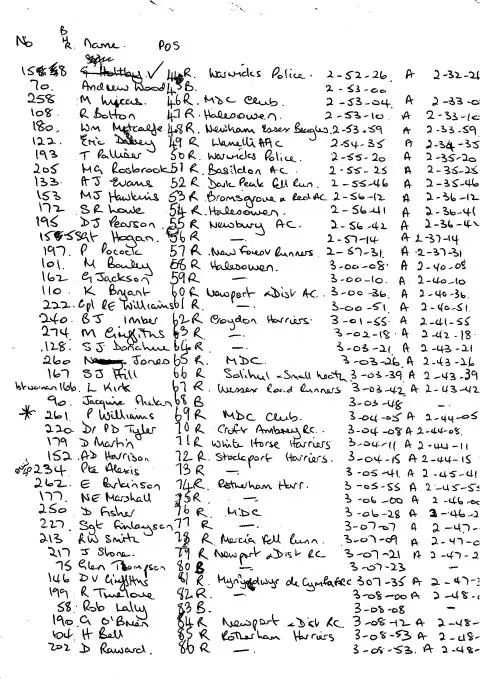 B
No R. Name. POS
15 8 G Holtby ✓ 44 R. Warwicks Police. 2-52-26. A 2-32-26
70. Andrew Wood 45 B. 2-53-00
258 M Lucas. 46 R. MDC Club. 2-53-04. A 2-33-0
108. R Bolton 47 R. Halesowen. 2-53-10. A 2-33-10
180. Wm Metcalfe 48 R. Newham Essex Beagles 2-53-59 A 2-33-59
122. Eric 49 R Llanelli AAC 2-54-35 A 2-34-35
193. T 50 R. Warwicks Police. 2-55-20 A 2-35-20
205 MG Rosbrook 51 R. Basildon AC. 2-55-25 A 2-35-25
133. A J Evans 52 R Dark Peak Fell Run. 2-55-46 A 2-35-46
153 MJ Hawkins 53 R. Bromsgrove & Red AC. 2-56-12 A 2-36-12
172 SR Lowe 54 R. Halesowen. 2-56-41 A 2-36-41
195 DJ Pearson 55 R. Newbury AC. 2-56-42 A 2-36-42
15 5 Sgt Hogan. 56 R — 2-57-14 A 2-37-14
197. P Pocock 57 R. New Forest Runners 2-57-31. A 2-37-31
101. M 58 R Halesowen. 3-00-08. A 2-40-08
162. G Jackson 59 R. — 3-00-10. A 2-40-10
110. K Bryant 60 R Newport & Dist AC. 3-00-36. A 2-40-36.
222. Cpl RE Williams 61 R. — 3-00-51. A 2-40-51.
240. BJ Imber 62 R Croydon Harriers. 3-01-55 A 2-41-55
274. M Griffiths 63 R — 3-02-18. A 2-42-18.
128. SJ Donahue 64 R — 3-03-21 A 2-43-21
260 Jones 65 R. MDC. 3-03-26. A 2-43-26
167 SJ Hill 66 R Solihull & Small Heath 3-03-39 A 2-43-39
166. L Kirk 67 R. Wessex Road Runners 3-03-42 A 2-43-42
90. Jacquie 68 B 3-03-48 —
* 261. P Williams 69 R MDC Club. 3-04-05 A 2-44-05
220 Dr PD Tyler 70 R Croft Ambrey RC. 3-04-08 A 2-44-08.
179 D Martin 71 R White Horse Harriers 3-04-11 A 2-44-11
152. AD Harrison 72 R. Stockport Harriers. 3-04-15 A 2-44-15
234 Pte Alexis 73 R — 3-05-41. A 2-45-41
262. E Parkinson 74 R. Rotherham Harr. 3-05-55 A 2-45-55
177. NE Marshall 75 R. —. 3-06-00 A 2-46-0
250 D Fisher 76 R. MDC 3-06-28 A 2-46-2
227. Sgt Finlayson 77 R —. 3-07-07 A 2-47-
213 RW Smith 78 R Mercia Fell Runn. 3-07-09 A 2-47-0
217 J Stone. 79 R Newport & Dist RC 3-07-21 A 2-47-2
75 Glen Thompson 80 B —. 3-07-23 —
146 DV Griffiths 81 R. 3-07-35 A 2-47-3
199 R Truelove 82 R. —. 3-08-00 A 2-48-
58. Rob Lally 83 B. 3-08-08 —
190. G O'Brien 84 R Newport & Dist RC. 3-08-12 A 2-48-
104. H Bell 85 R Rotherham Harriers 3-08-53 A 2-48-
202 D Raward. 86 R — 3-08-53. A 2-48-